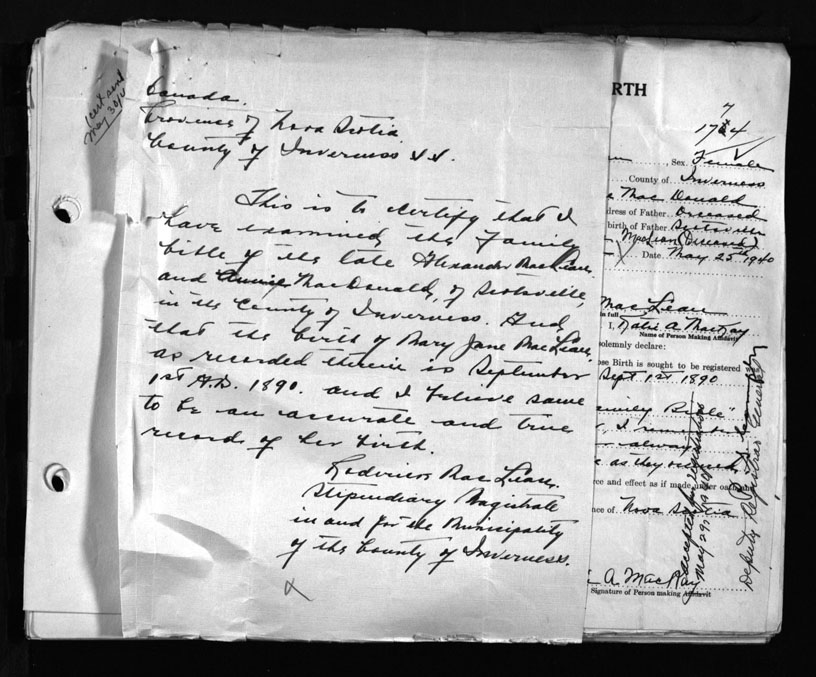 1 cert sent
May 30/40
Canada.
Province of Nova Scotia
County of Inverness N.S.
This is to certify that I
have examined the Family
bible of the late Alexander MacLean,
and Annie MacDonald, of Scotsville,
in the County of Inverness. And
that the birth of Mary Jane MacLean,
as recorded therein is September
1st A.D. 1890. and I believe same
to be an accurate and true
record of her birth.
Lodovicus MacLean.
Stipendiary Magistrate
in and for the Municipality
of the County of Inverness.
RTH
7
1764
, Sex Female
County of Inverness
e MacDonald
dress of Father Deceased
birth of Father Scotsville
MacLean (Deceased)
Date May 25th 1940
MacLean
in full
I, Katie A MacKay
Name of Person Making Affidavit
solemnly declare:
ose Birth is sought to be registered
Sept 1st 1890
amily Bible"
, I remember
always
as they
rce and effect as if made under oath and
nce of Nova Scotia
A. MacKay
Signature of Person making Affidavit
accepted for registration
May 29 1940
Deputy Registrar General